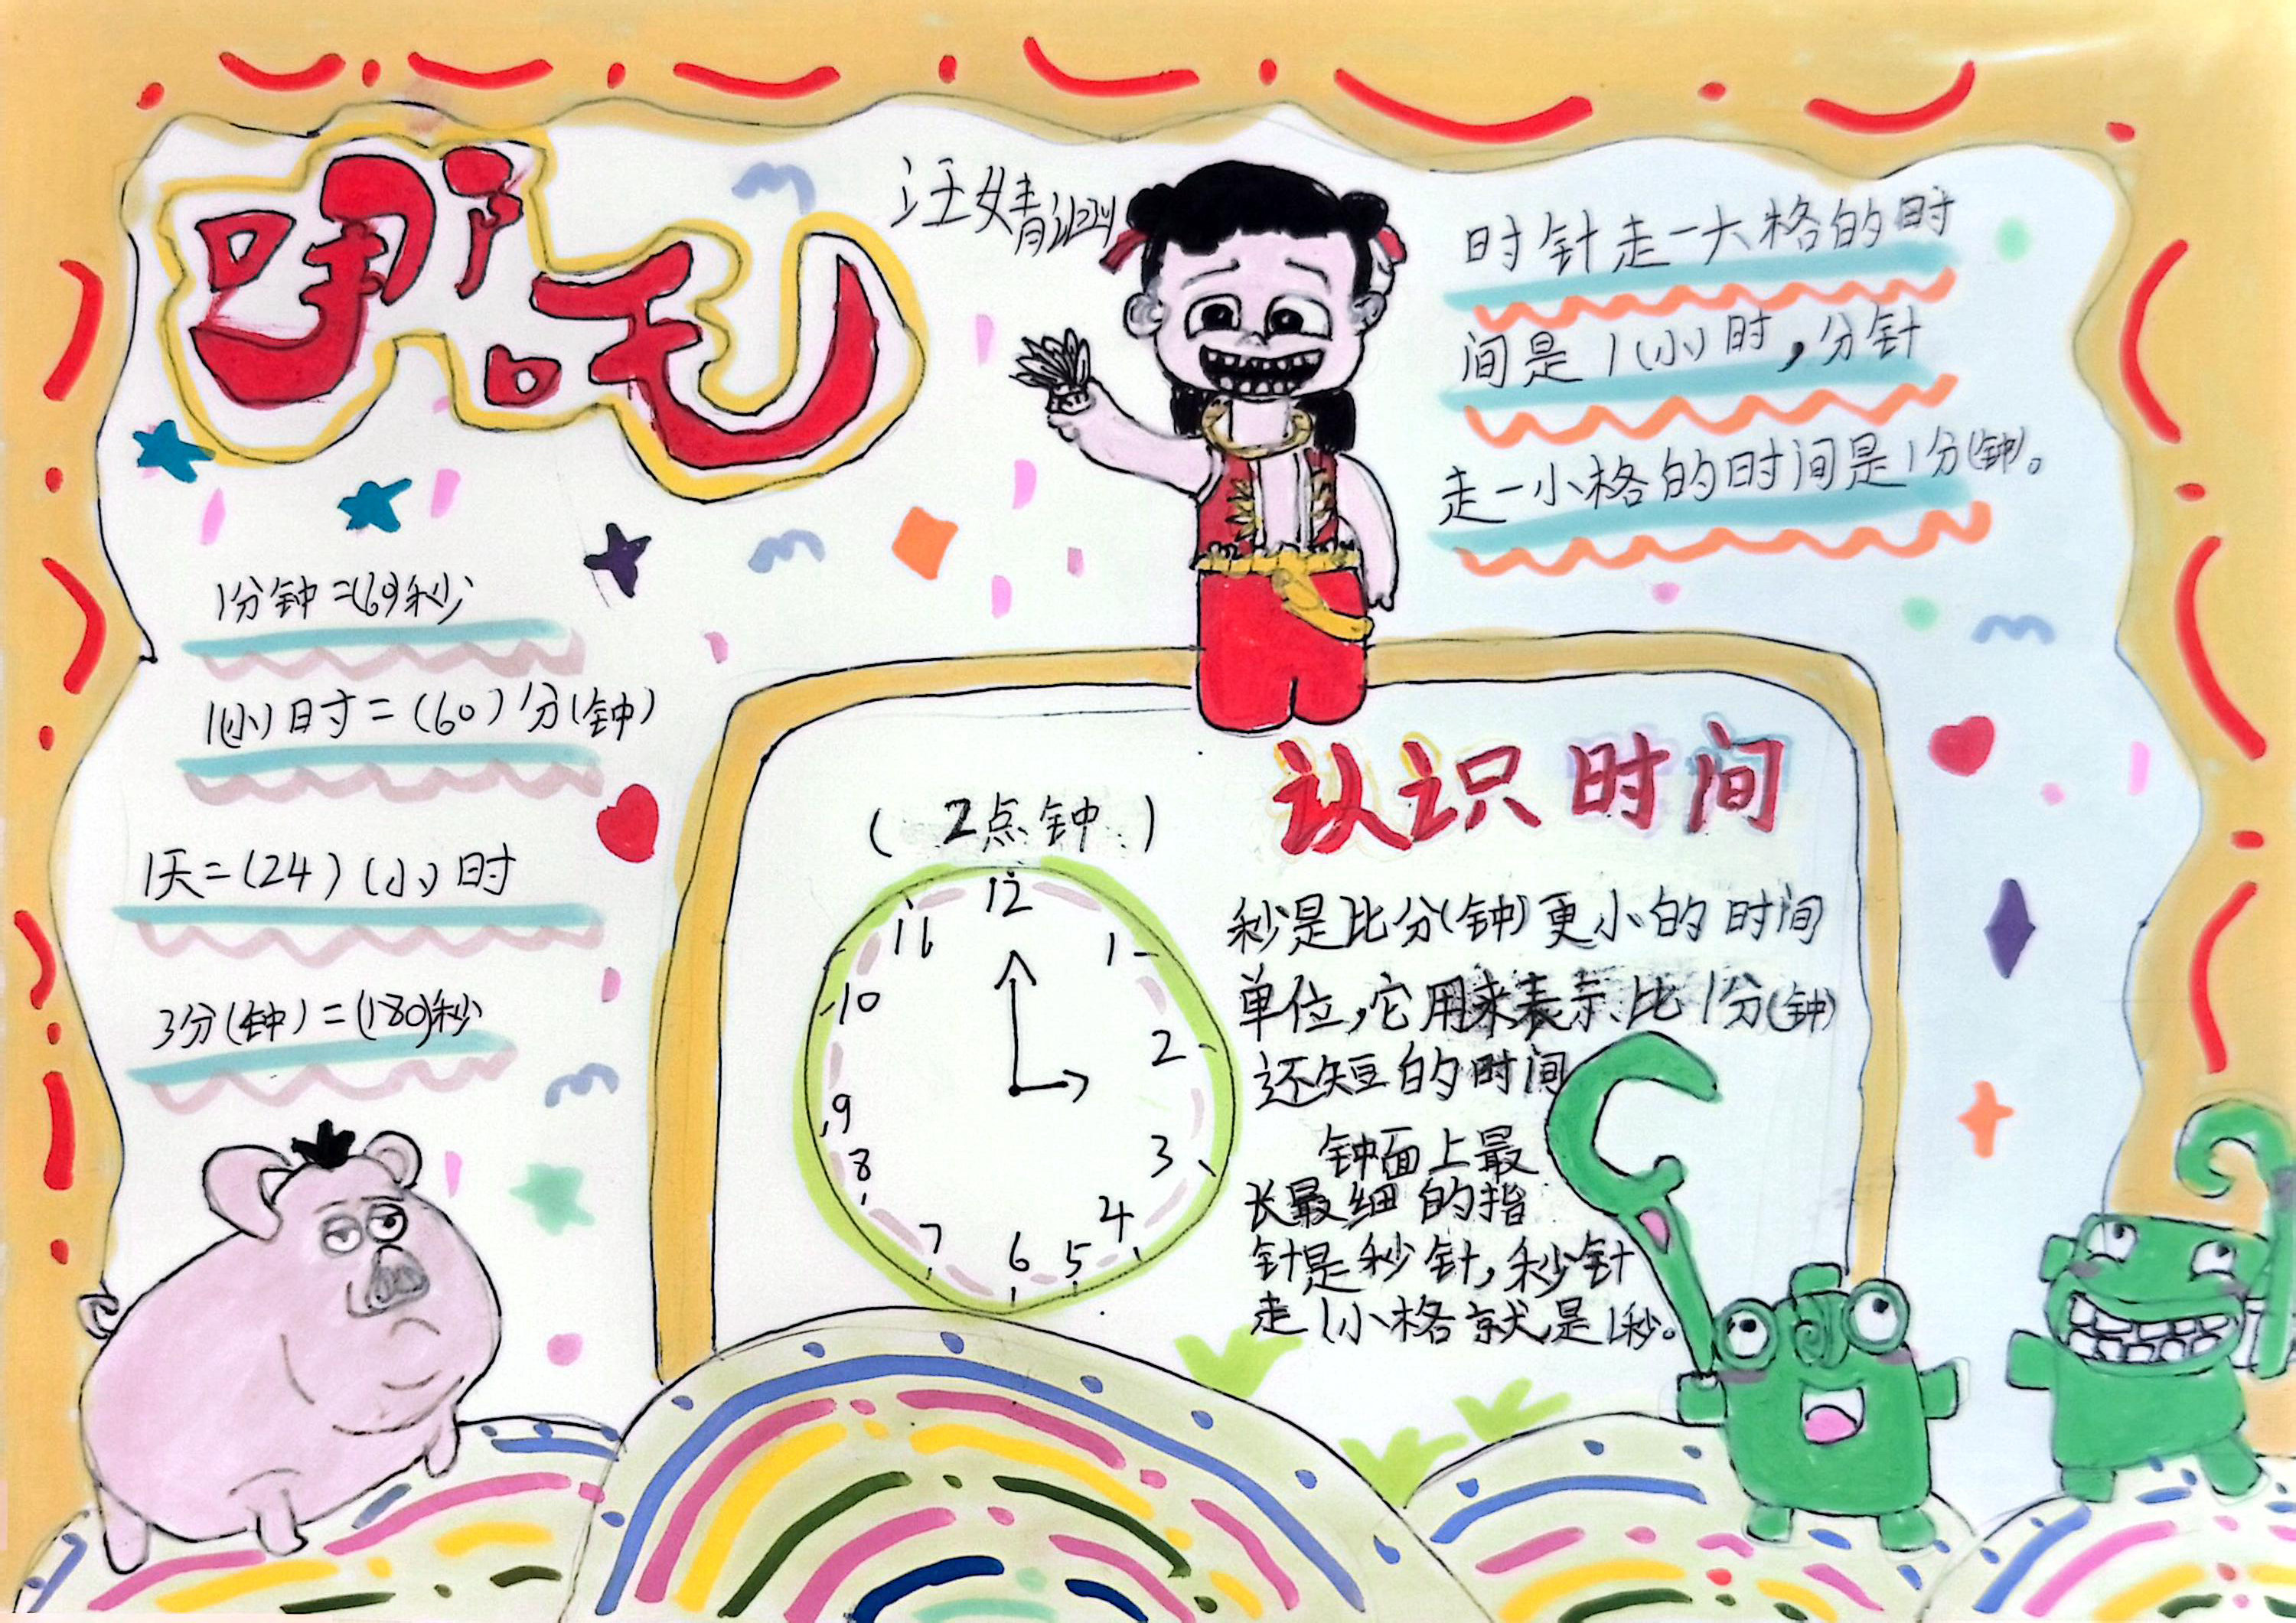 哪吒
汪婧
时针走一大格的时
间是1(小)时，分针
走一小格的时间是1分(钟)。
1分钟=(60)秒
1(小)时=(60)分(钟)
1天=(24)(小)时
3分(钟)=(180)秒
认识时间
(2点钟)
12
1
2
3
4
5
6
7
8
9
10
11
秒是比分(钟)更小的时间
单位，它用来表示比1分(钟)
还短的时间
钟面上最
长最细的指
针是秒针，秒针
走1小格就是1秒。